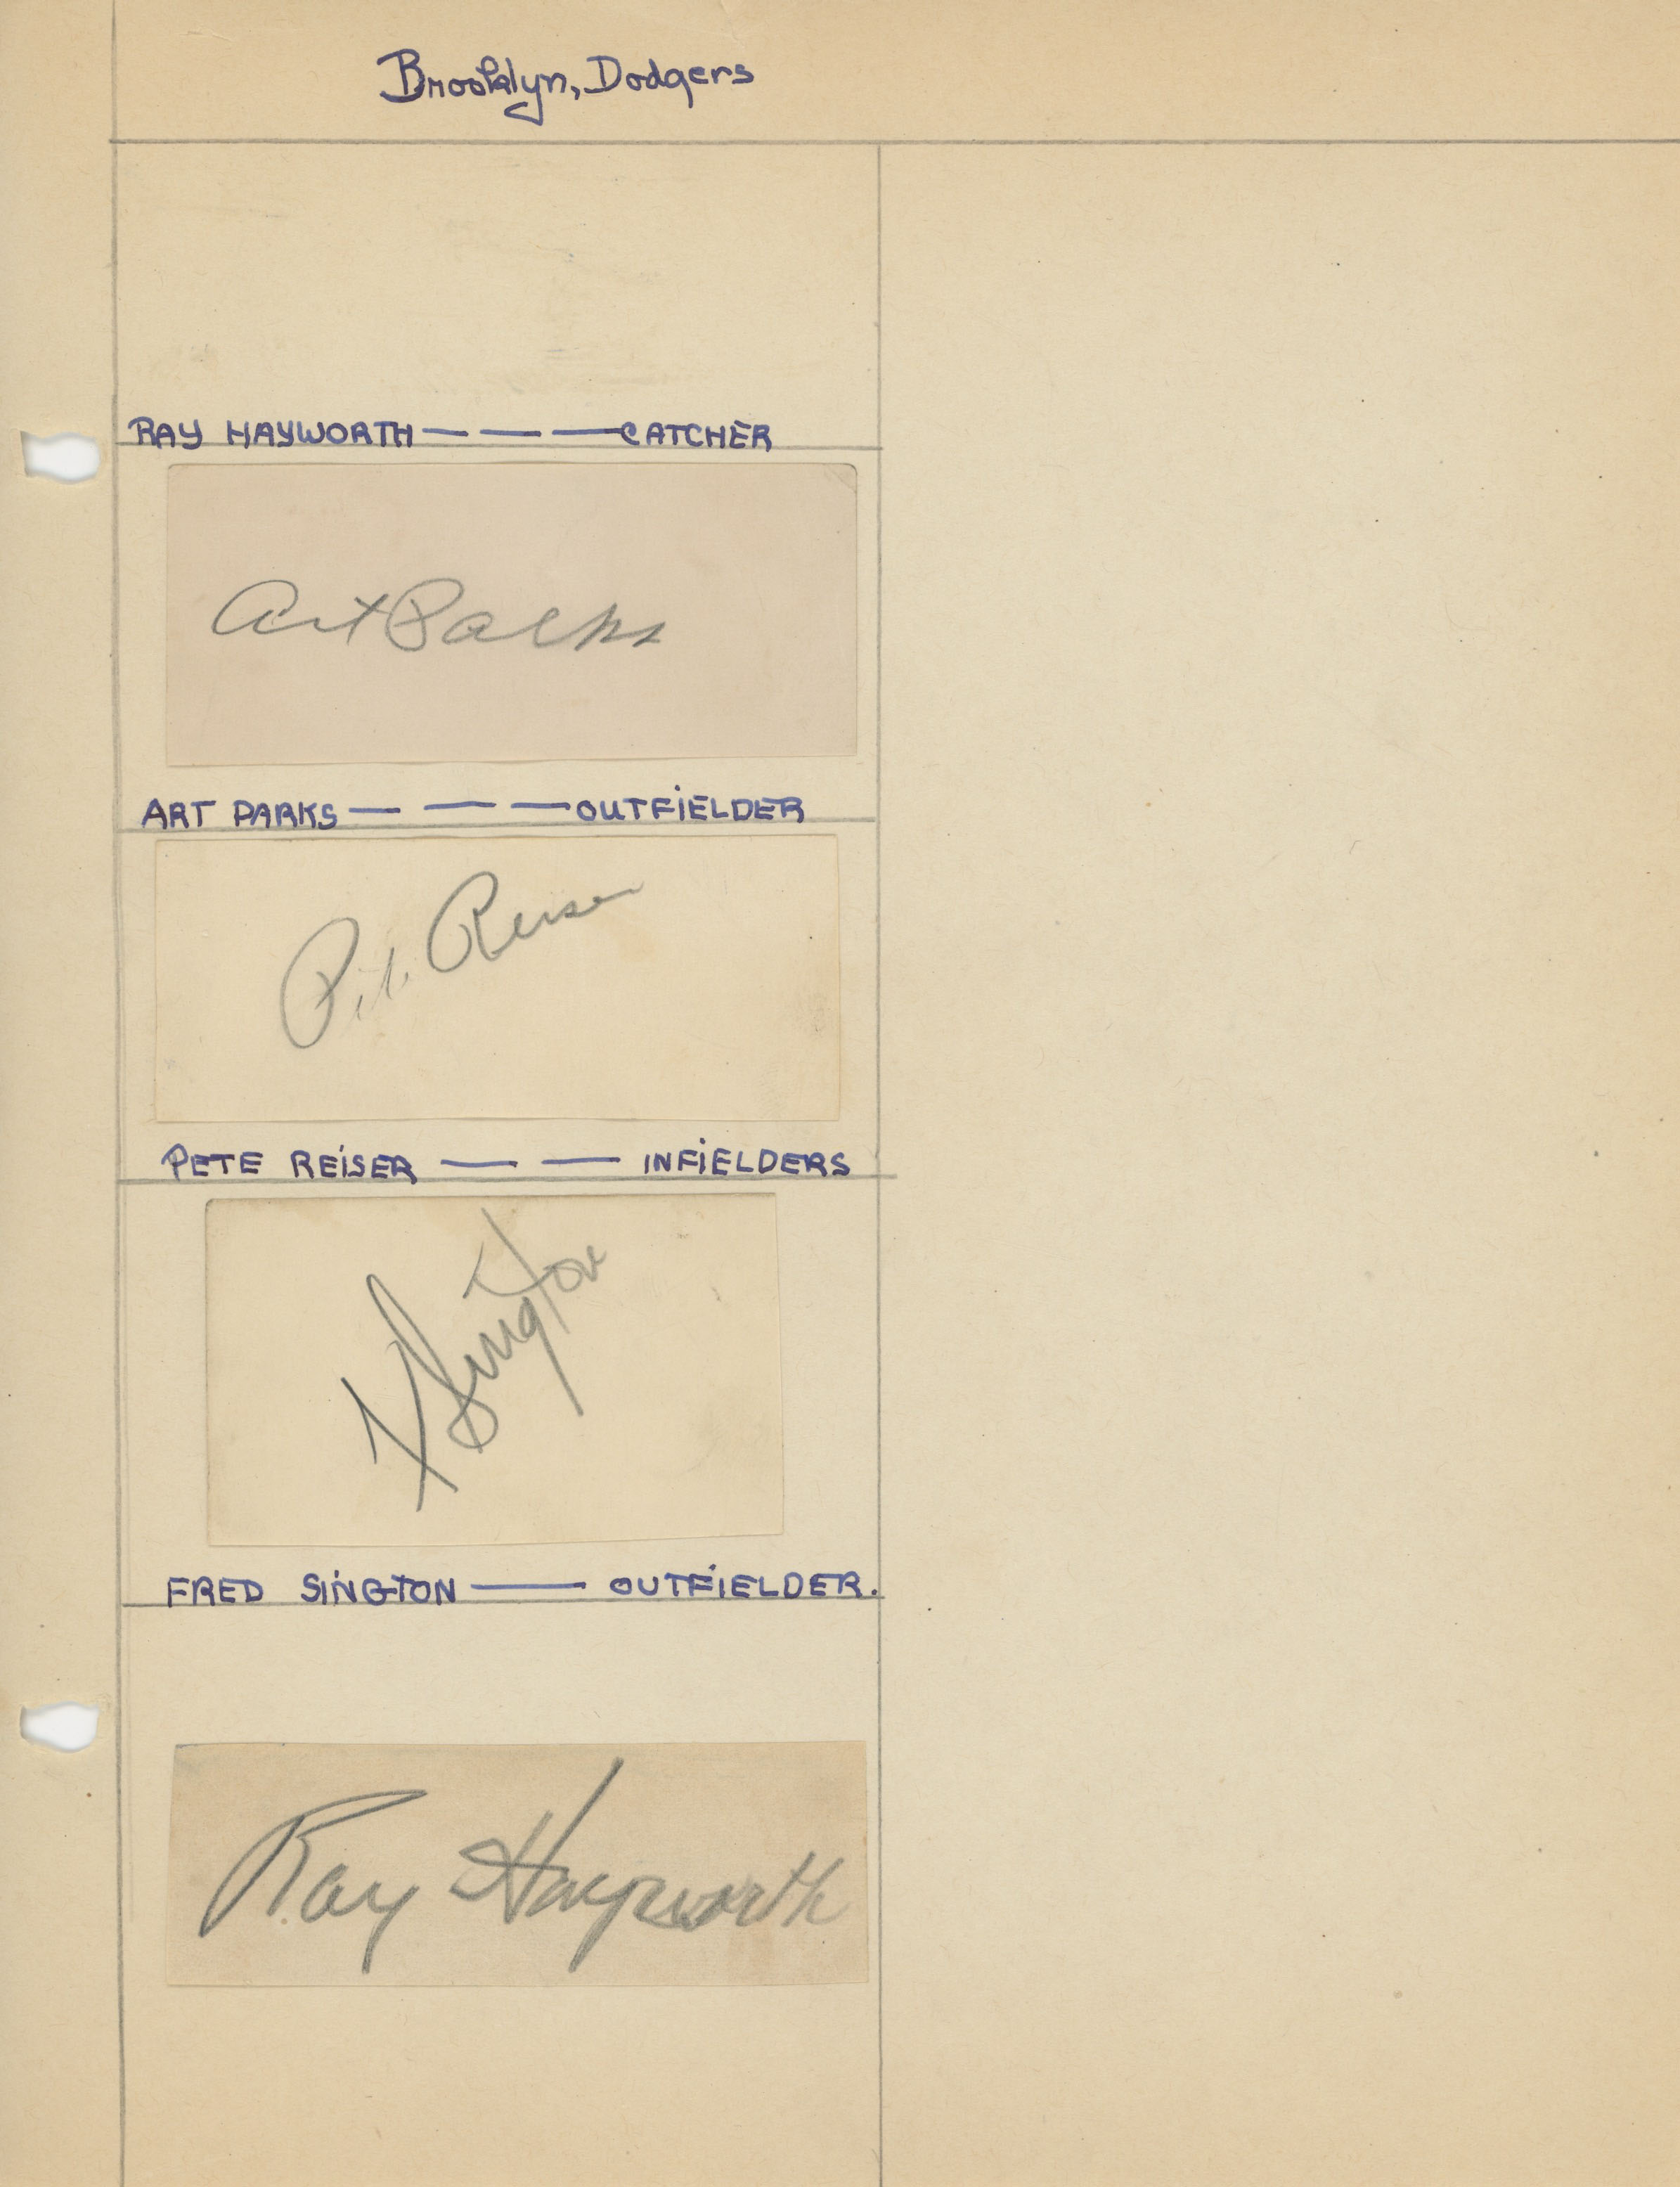 Brooklyn, Dodgers
RAY HAYWORTH — — — CATCHER
Art Parks
ART PARKS — — — OUTFIELDER
Pete Reiser
PETE REISER — — INFIELDERS
F Sington
FRED SINGTON — OUTFIELDER.
Ray Hayworth